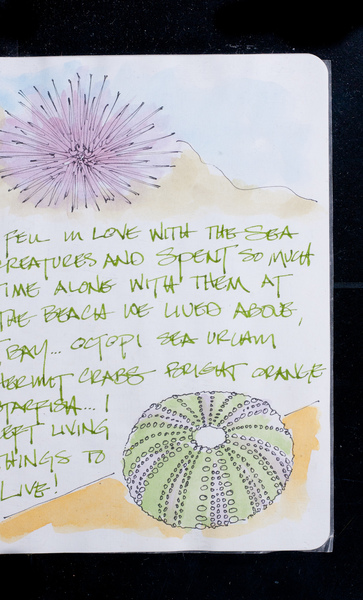 FELL IN LOVE WITH THE SEA
CREATURES AND SPENT SO MUCH
TIME ALONE WITH THEM AT
THE BEACH WE LIVED ABOVE,
BAY... OCTOPI SEA URCHIN
HERMIT CRABS BRIGHT ORANGE
STARFISH.... I
LEFT LIVING
THINGS TO
LIVE!